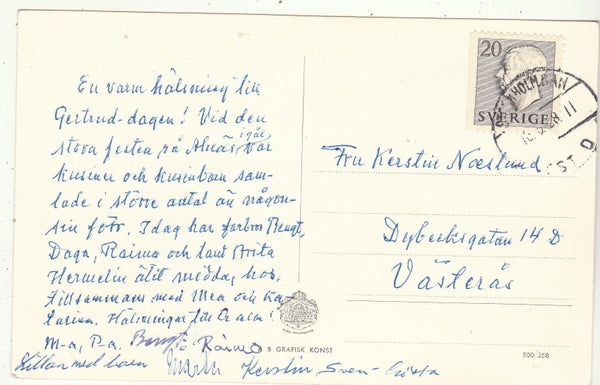 En varm hälsning till
Gertrud-dagen! Vid den
stora festen på Alnäs igår var
kusiner och kusinbarn sam-
lade i större antal än någon-
sin förr. Idag har farbror Bengt,
Daga, Raimo och tant Brita
Hermelin ätit middag hos
tillsammans med Mea och Ka-
tarina. Hälsningar till Er alla!
M-a, P-a. Bengt Raimo
Martin Kerstin Sven-Gösta
20
SVERIGE
Fru Kerstin Naeslund
Dybecksgatan 14 D
Västerås
B GRAFISK KONST
500/358